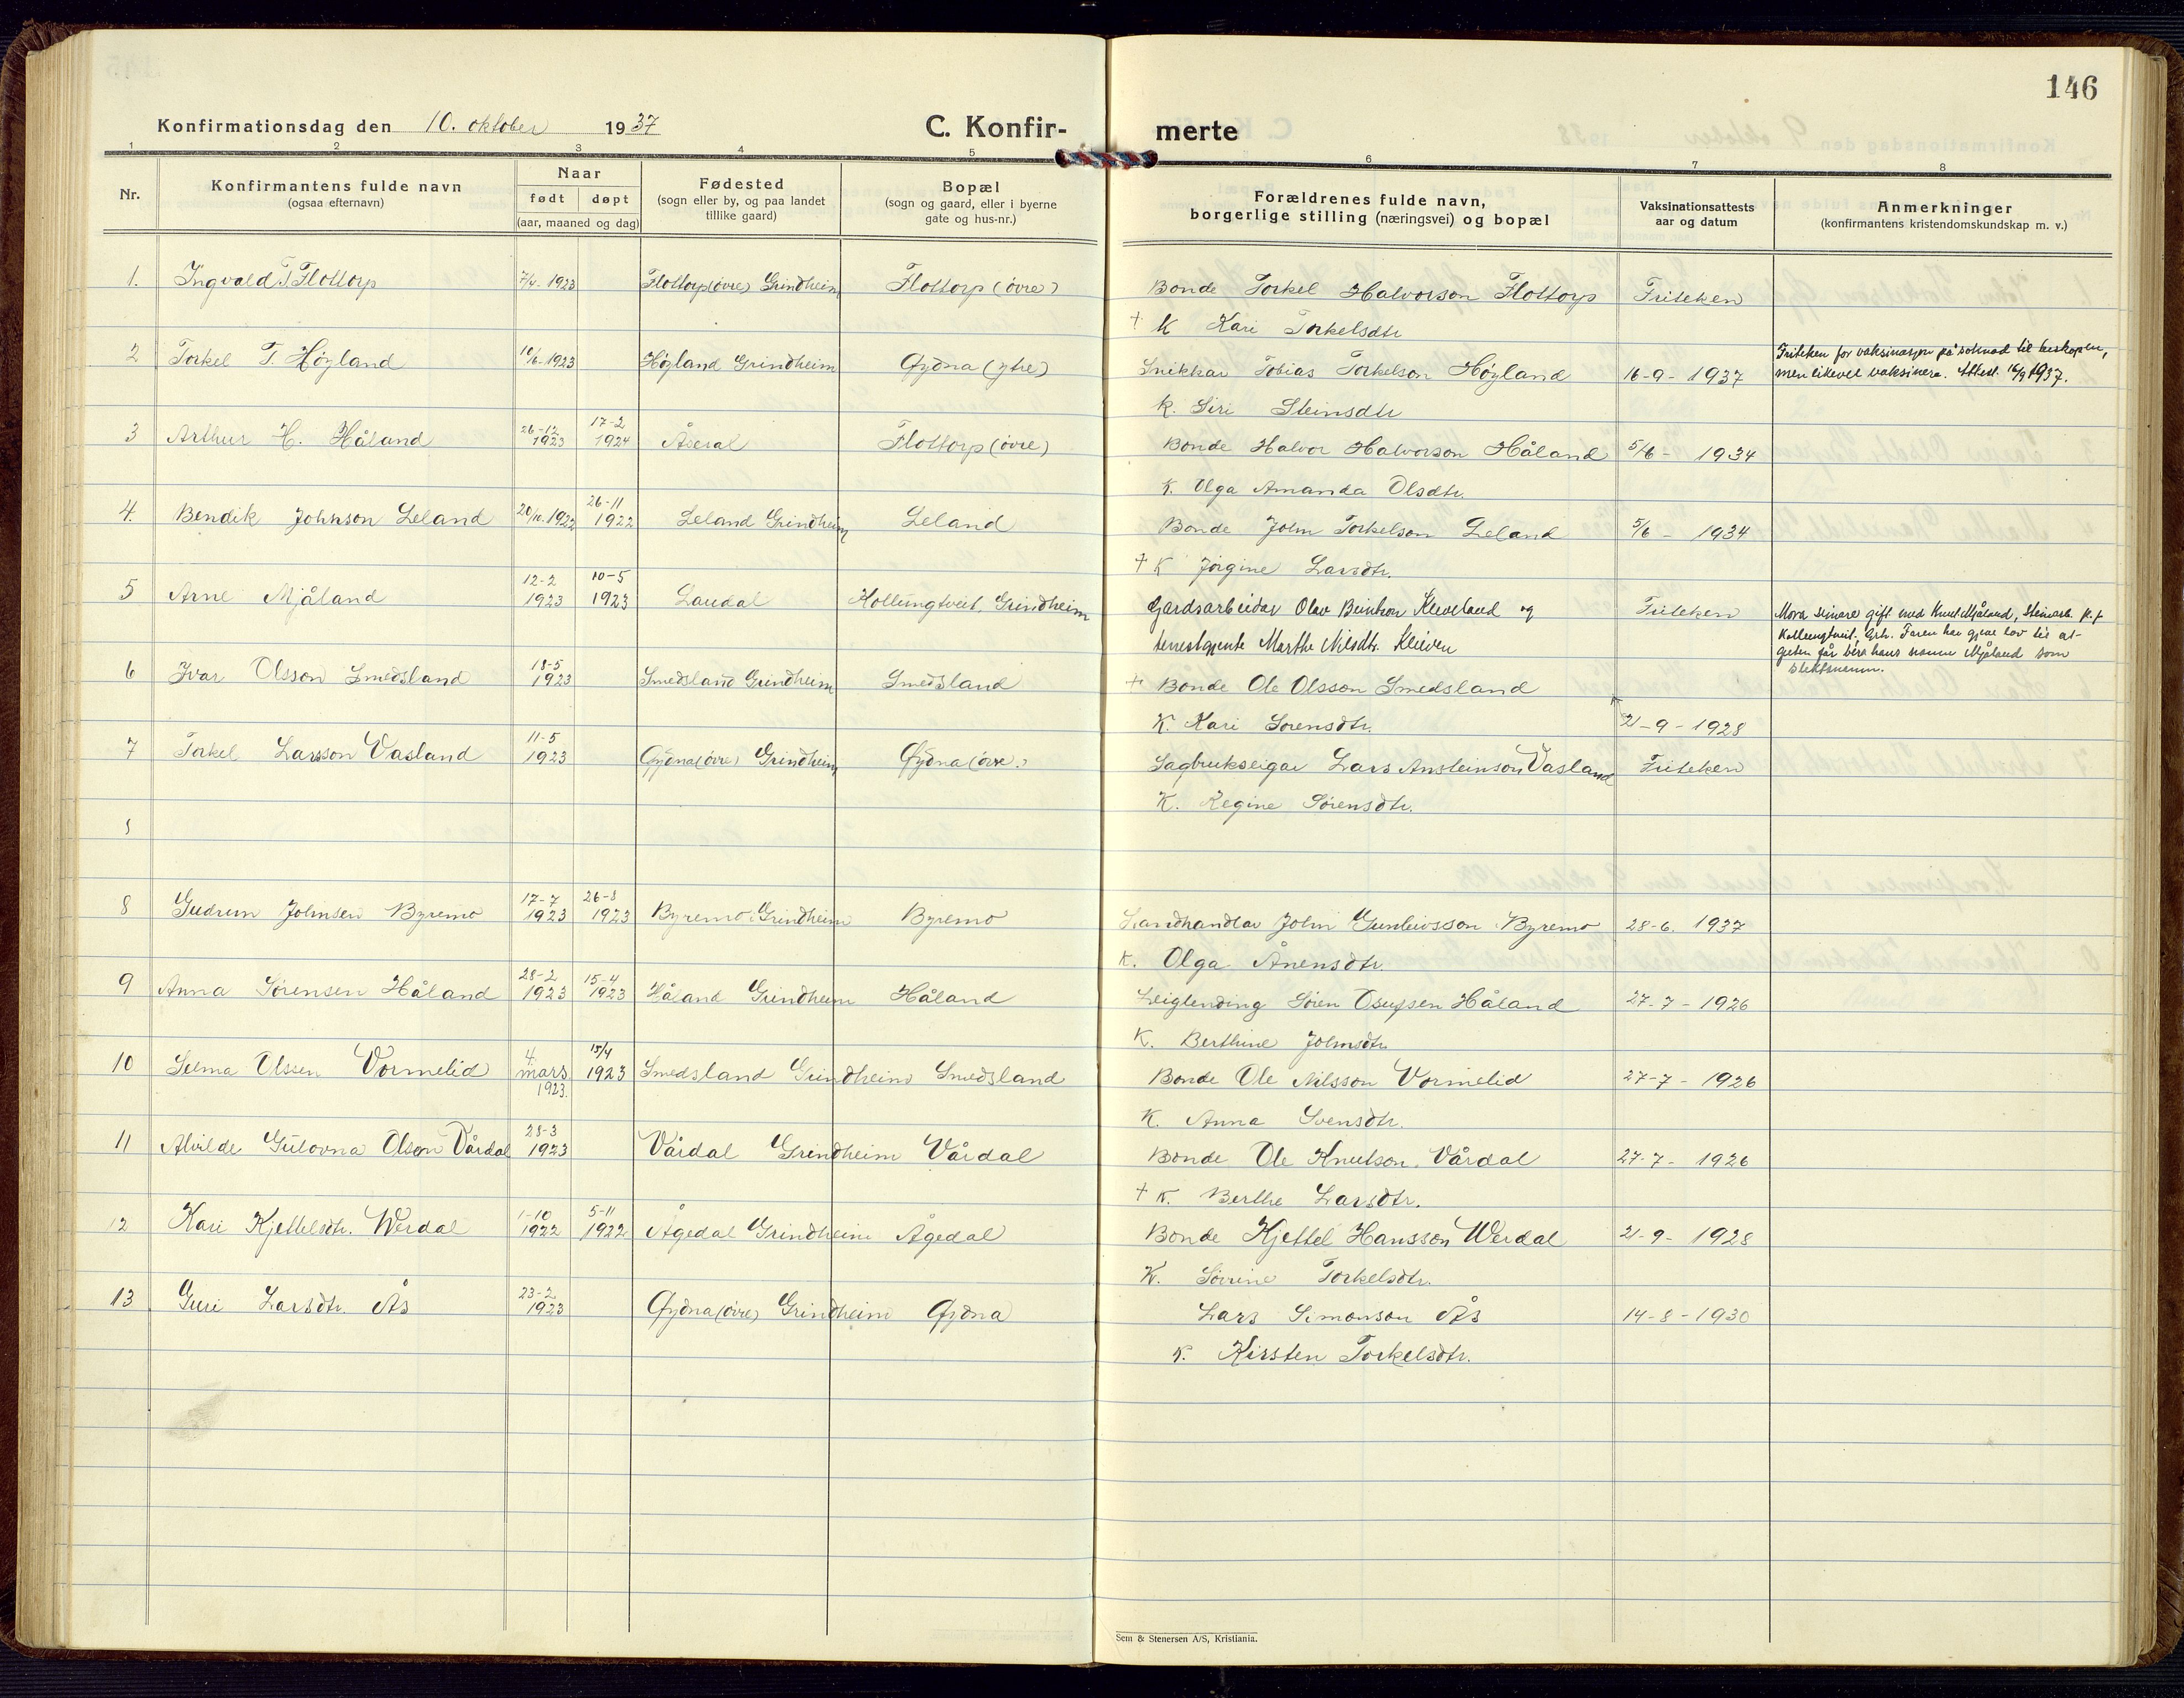 146
Konfirmationsdag den 10. oktober 1937
C. Konfir- merte
1 2 3 4 5 6 7 8
Nr.
Konfirmantens fulde navn
(ogsaa efternavn)
Naar
født døpt
(aar, maaned og dag)
Fødested
(sogn eller by, og paa landet
tillike gaard)
Bopæl
(sogn og gaard, eller i byerne
gate og hus-nr.)
Forældrenes fulde navn,
borgerlige stilling (næringsvei) og bopæl
Vaksinationsattests
aar og datum
Anmerkninger
(konfirmantens kristendomskundskap m. v.)
1. Ingvald T. Flottorp 7/4-1923 Flottorp (övre) Grindheim Flottorp (övre) Bonde Torkel Halvorson Flottorp Friteken
† K Kari Torkelsdtr
2 Torkel T. Høyland 10/6-1923 Høyland Grindheim Gyðna (ytre) Snikkar Tobias Torkelson Høyland 16-9-1937
Friteken for vaksinasjon på soknad til biskopen,
men likevel vaksinera. Attest. 16/9 1937.
K. Siri Steinsdtr
3 Arthur H. Håland 26-12 1923 17-2 1924 Åseral Flottorp (övre) Bonde Halvor Halvorson Håland 5/6- 1934
K. Olga Amanda Olsdtr.
4. Bendik Johnson Leland 20/10.1922 26-11 1922 Leland Grindheim Leland Bonde John Torkelson Leland 5/6 - 1934
† K Jörgine Larsdtr.
5 Arne Mjåland 12-2 1923 10-5 1923 Laudal Kollungtveit, Grindheim Gardsarbeidar Olav Kleveland og Friteken
tenestgjente Marthe Nilsdtr. Kleiven
Mora seinare gift med Knut Mjåland, Steinarb. p.t
Kollungtveit, Grh. Faren har gjeve lov til at
guten får bera hans namn Mjåland som
slektsnamn.
6 Ivar Olsson Smedsland 18-5 1923 Smedsland Grindheim Smedsland † Bonde Ole Olsson Smedsland
K. Kari Sorensdtr. 21-9-1928
7 Torkel Larsson Vasland 11-5 1923 Gyðna (övre) Grindheim Gyðna (övre) Sagbrukseigar Lars Ansteinson Vasland Friteken
K. Regine Sörensdtr.
8
8 Gudrun Johnsen Byremo 17-7 1923 26-8 1923 Byremo i Grindheim Byremo Landhandlar John Gunleivsson Byremo 28-6. 1937
K. Olga Ånensdtr.
9 Anna Sörensen Håland 28-2 1923 15-4 1923 Håland Grindheim Håland Leiglending Sören Håland 27-7-1926
K. Berthine Johnsdtr
10 Selma Olsen Vormelid 4. mars 1923. 15/4 1923 Smedsland Grindheim Smedsland Bonde Ole Nilsson Vormelid 27-7-1926
K. Anna Svensdtr.
11 Alvilde Gulovna Olsen Vårdal 28-3 1923 Vårdal Grindheim Vårdal Bonde Ole Knutson Vårdal 27-7-1926
† K. Berthe Larsdtr.
12 Kari Kjettelsdtr. Werdal 1-10 1922 5-11 1922 Ågedal Grindheim Ågedal Bonde Kjettel Hansson Werdal 21-9-1928
K. Sörine Torkelsdtr.
13 Guri Larsdtr. Ås 23-2 1923 Gyðna (övre) Grindheim Gyðna Lars Simonson Ås 14-8-1930
K. Kirsten Torkelsdtr.
Sem & Stenersen A/S, Kristiania.